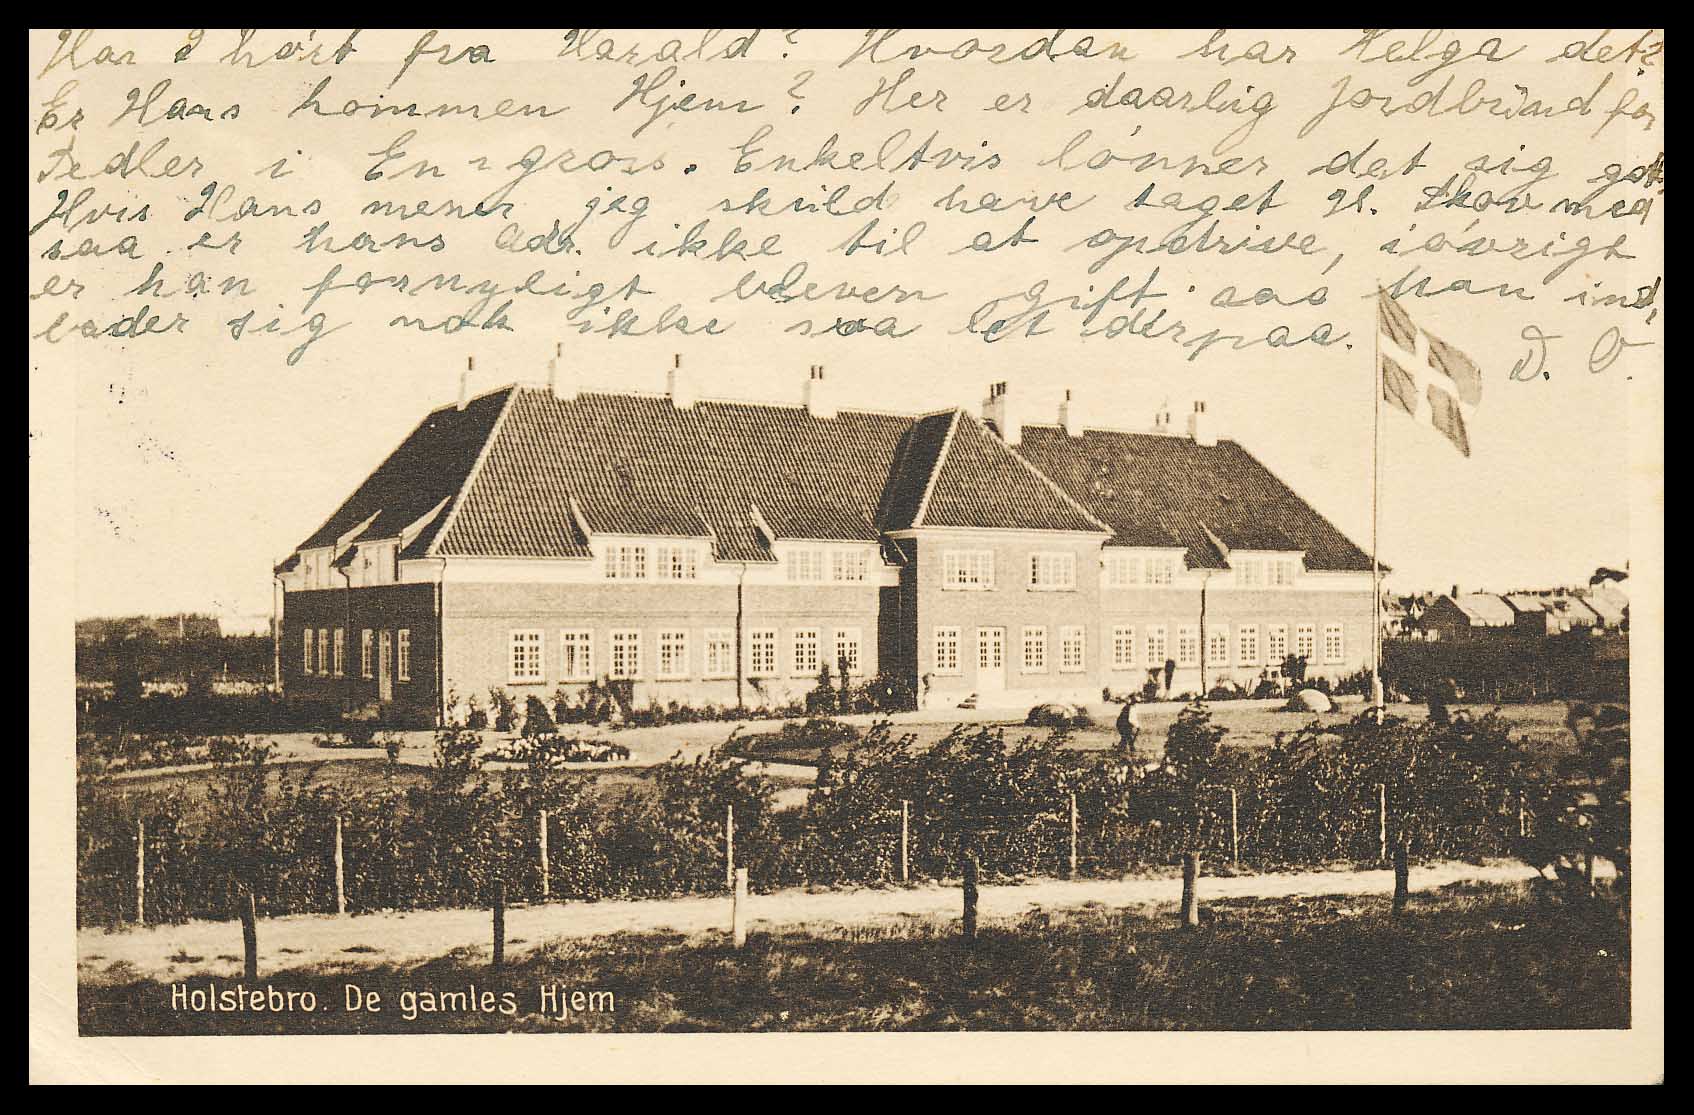 Har I hørt fra Harald? Hvordan har Helga det?
Er Hans kommen Hjem? Her er daarlig Jordbund for
Pedler i En gros. Enkeltvis lønner det sig godt.
Hvis Hans mener jeg skuld have taget gl. Skov med
saa er hans Adr. ikke til at opdrive, iøvrigt
er han fornyligt bleven gift saa han ind,
lader sig nok ikke saa let derpaa.
D. O.
Holstebro. De gamles Hjem